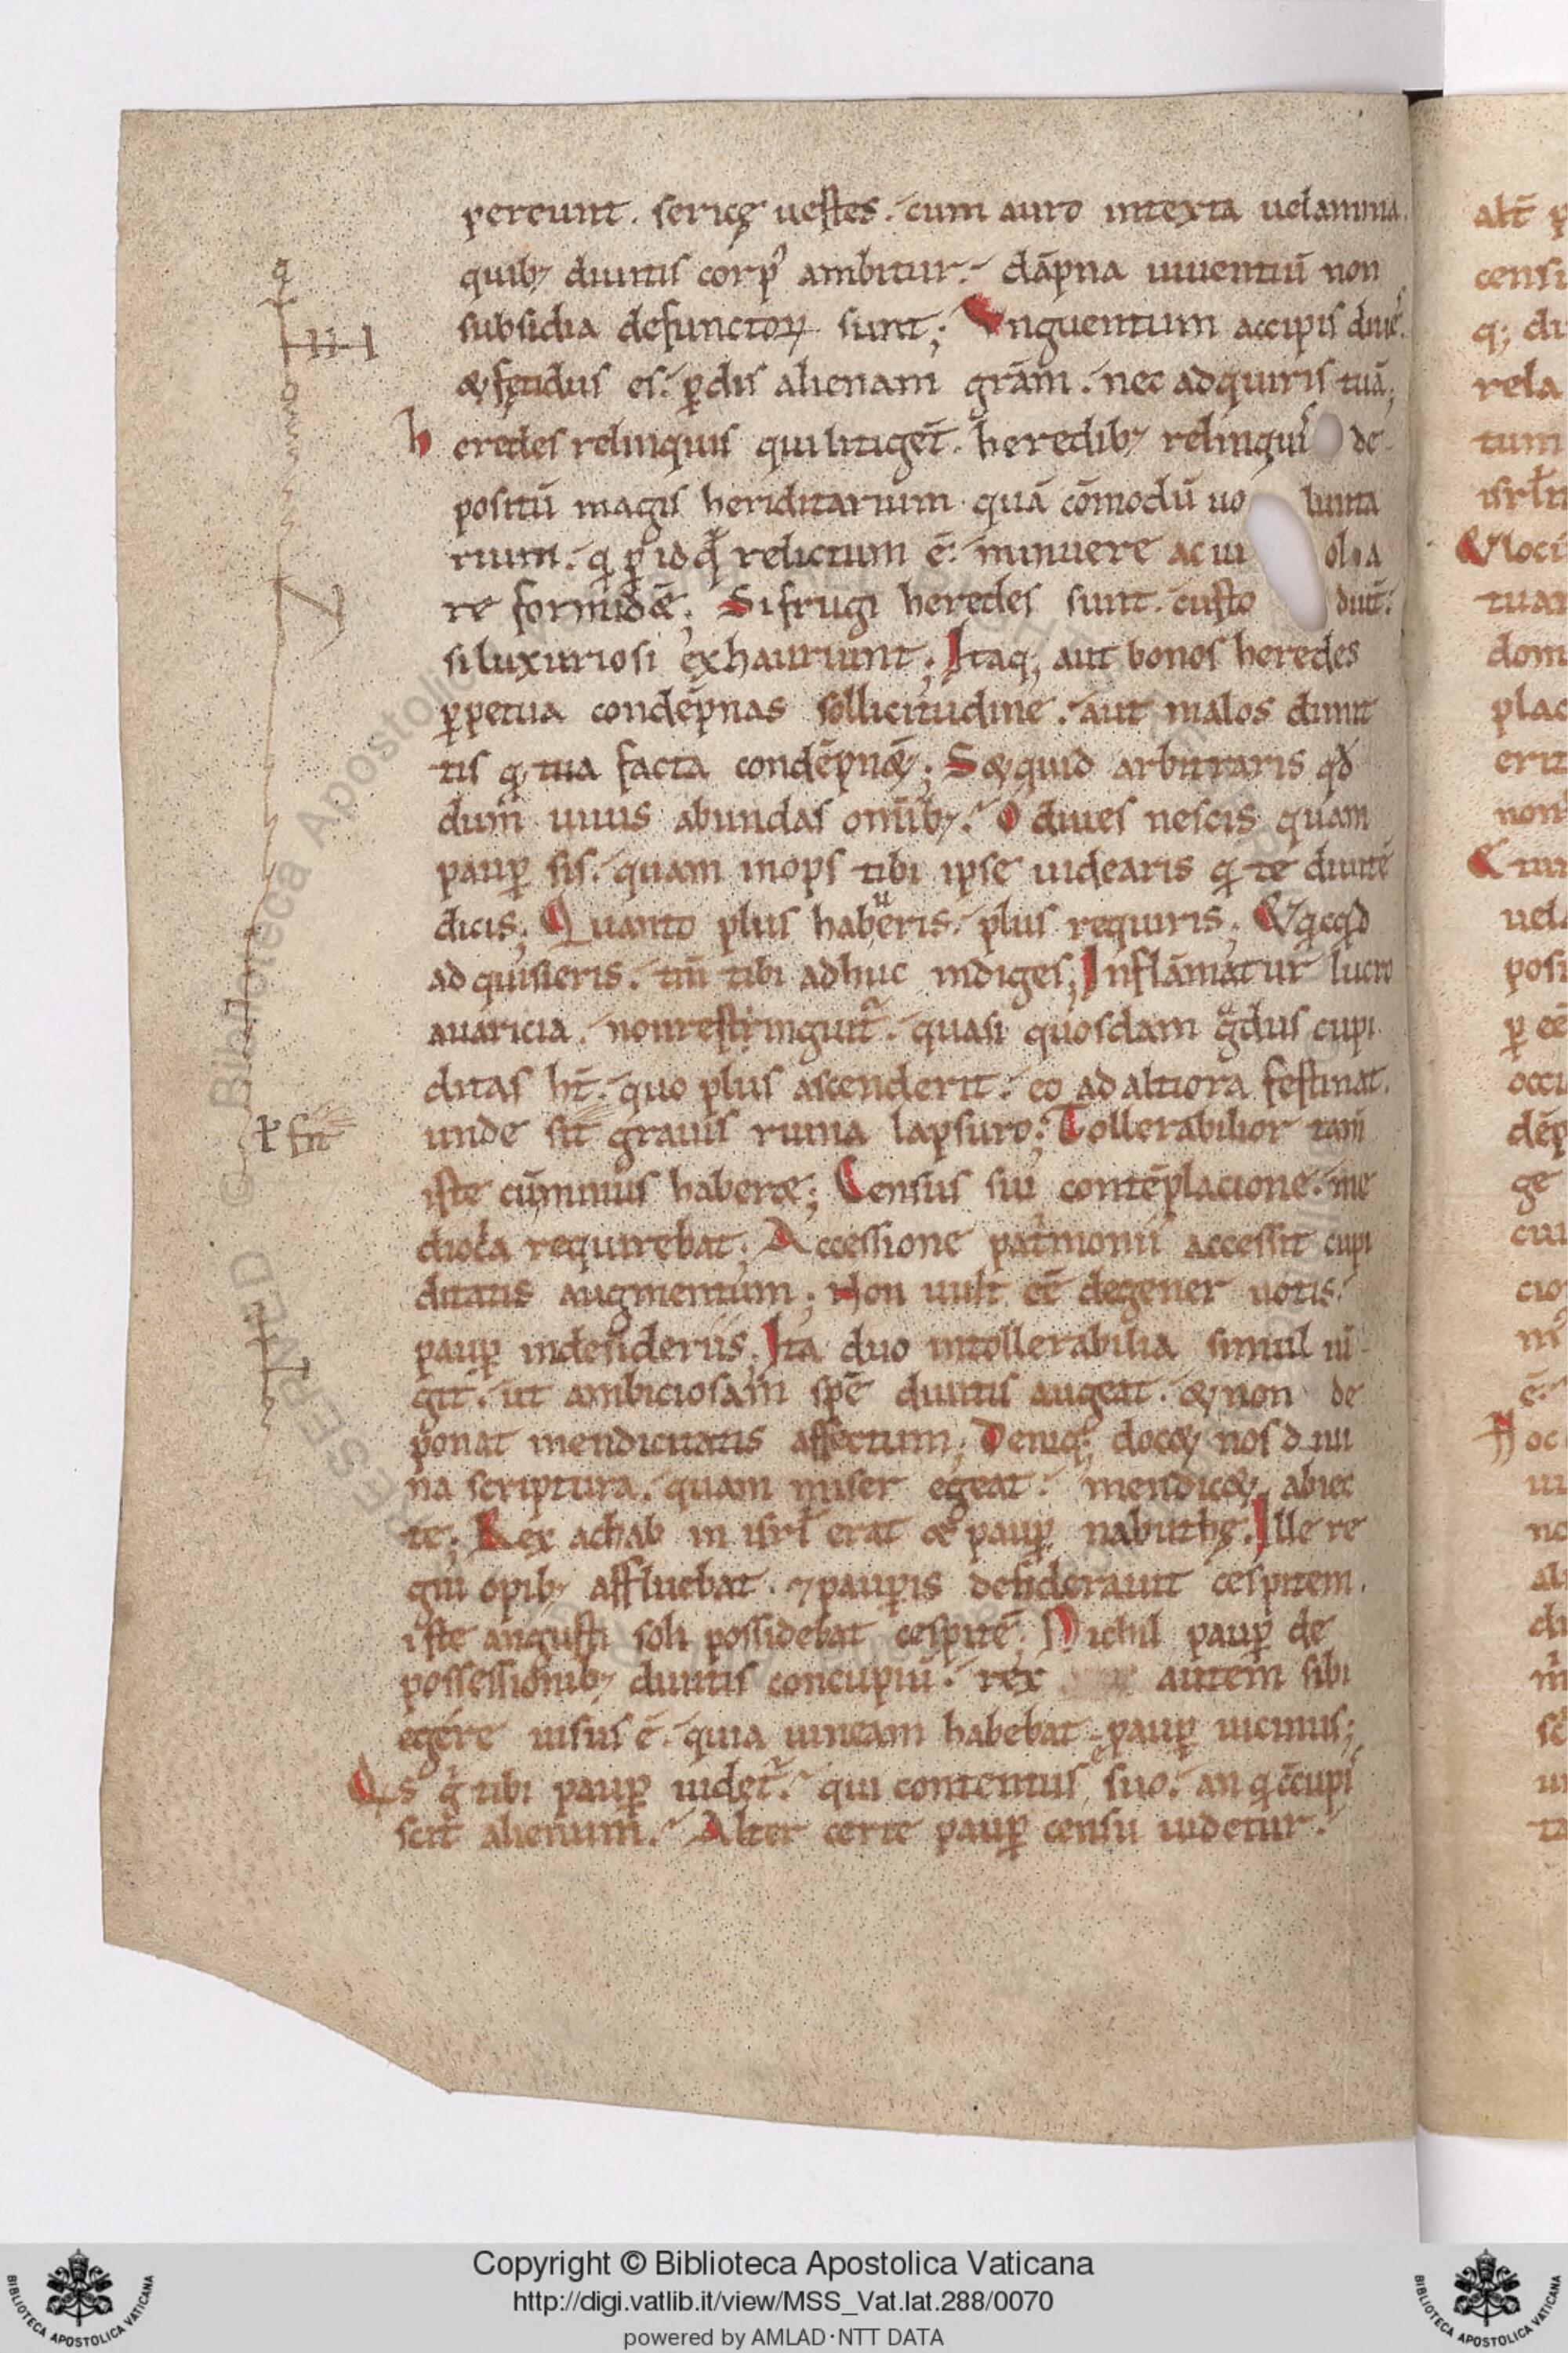 pereunt. sericę uestes. cum auro intexta uelamina.
quib; diuitis corp᾽ ambitur. dāpna uiuentiū non
subsidia defunctoꝝ sunt; Vnguentum accipis diues.
& fętidus es. ꝑdis alienam grām. nec adquiris tuā;
heredes relinquis qui litigēt. heredib; relinquis de
positū magis heriditarium quā cōmodū uo lunta
rium. q̄ ꝑ id qđ relictum ē. minuere ac ui ola
re formidāt; Si frugi heredes sunt. custo diūt.
si luxuriosi exhauriunt; Itaq; aut bonos heredes
ꝑpetua condēpnas sollicitudine. aut malos dimit
tis q̄ tua facta condēpn&; S& quid arbitraris qđ
dum uiuis abundas omīb;. O diues nescis quam
pauꝑ sis. quam inops tibi ipse uidearis q̄ te diuitē
dicis; Quanto plus habueris. plus requiris; & qcqđ
adquisieris. tn̄ tibi adhuc indiges; Inflāmatur lucro
auaricia. non restringuit᷑. quasi quosdam gͣdus cupi
ditas ht̄. quo plus ascenderit. eo ad altiora festinat.
unde sit grauis ruina lapsuro; Tollerabilior tam̄
ł fn̄
iste cū minus haberet; Census sui contēplacione. me
diocͥa requirebat; Accessione patͥmonii accessit cupi
ditatis augmentum; Non uult eē degener uotis.
pauꝑ in desideriis; Ita duo intollerabilia simul iū
git. ut ambiciosam spē diuitis augeat. & non de
ponat mendicitatis affectum; Deniq; doc& nos diui
na scriptura. quam miser egeat. mendic& abiec
te; Rex achab in isrł erat & pauꝑ nabuthę. Ille re
gni opib; affluebat. ⁊ pauꝑis desiderauit cespitem.
iste angusti soli possidebat cespitē; Nichil pauꝑ de
possessionib; diuitis concupiu͛. rex autem sibi
egere uisus ē. quia uineam habebat pauꝑ uicinus;
Qͥs g͛ tibi pauꝑ uidet᷑. qui contentus ē suo. an q̄ cōcupi
scit alienum. Alter certe pauꝑ censu uidetur.
alt̄
censi
q; di
rela
tum
isrł
& loci
tuar
dom
plac
erit
non
& tu
uel
posi
ꝑ
occi
dēp
ge
cui
cio
ē
Noc
Biblioteca Apostolica
© RESERVED
Copyright © Biblioteca Apostolica Vaticana
http://digi.vatlib.it/view/MSS_Vat.lat.288/0070
powered by AMLAD·NTT DATA
BIBLIOTECA APOSTOLICA VATICANA
BIBLIOTECA APOSTOLICA VATICANA